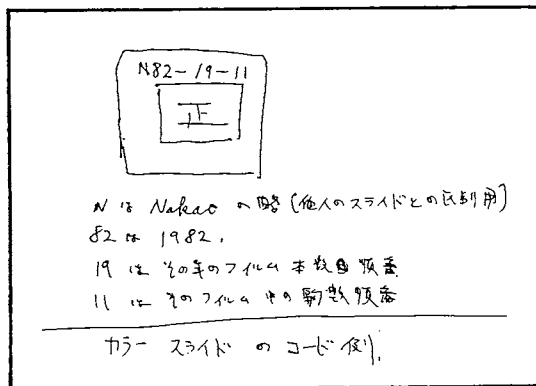 N82-19-11
正
NはNakaoの略(他人のスライドとの区別用)
82は1982.
19はその年のフィルム本数順番
11はそのフィルム中の駒数順番
カラースライドのコード例